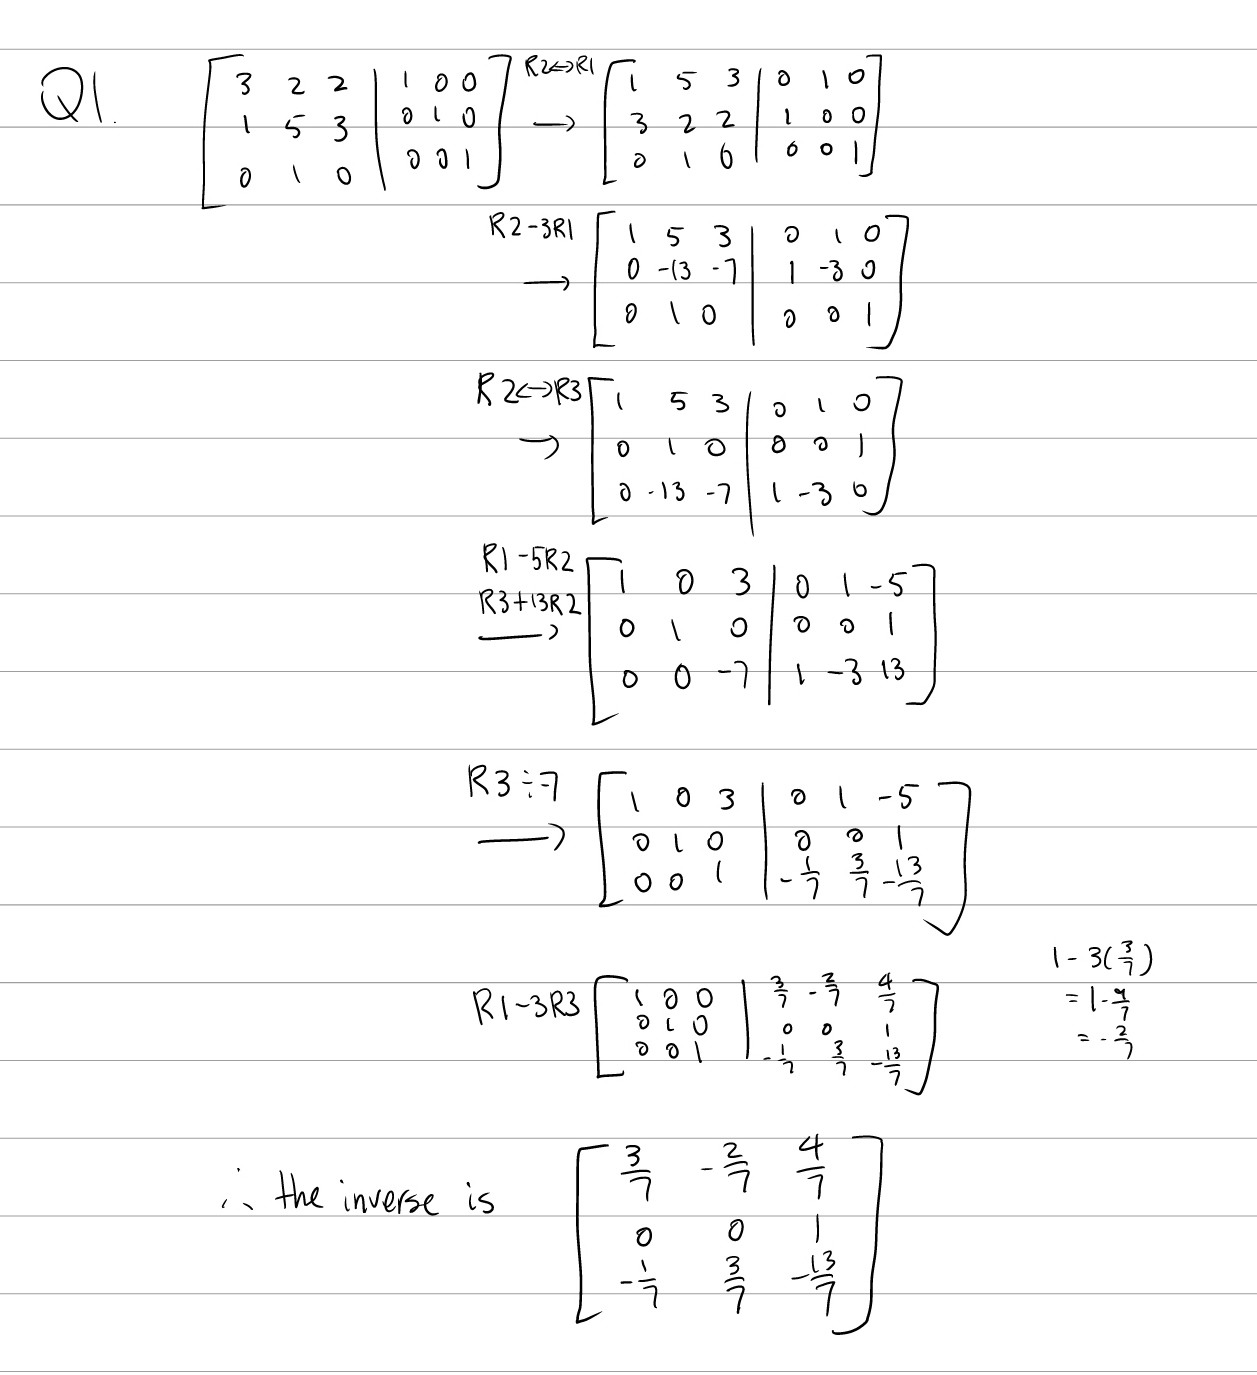 Q1. [3 2 2 | 1 0 0; 1 5 3 | 0 1 0; 0 1 0 | 0 0 1] R2↔R1 → [1 5 3 | 0 1 0; 3 2 2 | 1 0 0; 0 1 0 | 0 0 1]
R2-3R1 → [1 5 3 | 0 1 0; 0 -13 -7 | 1 -3 0; 0 1 0 | 0 0 1]
R2↔R3 → [1 5 3 | 0 1 0; 0 1 0 | 0 0 1; 0 -13 -7 | 1 -3 0]
R1-5R2 R3+13R2 → [1 0 3 | 0 1 -5; 0 1 0 | 0 0 1; 0 0 -7 | 1 -3 13]
R3÷-7 → [1 0 3 | 0 1 -5; 0 1 0 | 0 0 1; 0 0 1 | -1/7 3/7 -13/7]
R1-3R3 [1 0 0 | 3/7 -2/7 4/7; 0 1 0 | 0 0 1; 0 0 1 | -1/7 3/7 -13/7]
1-3(3/7)
=1-9/7
=-2/7
∴ the inverse is [3/7 -2/7 4/7; 0 0 1; -1/7 3/7 -13/7]